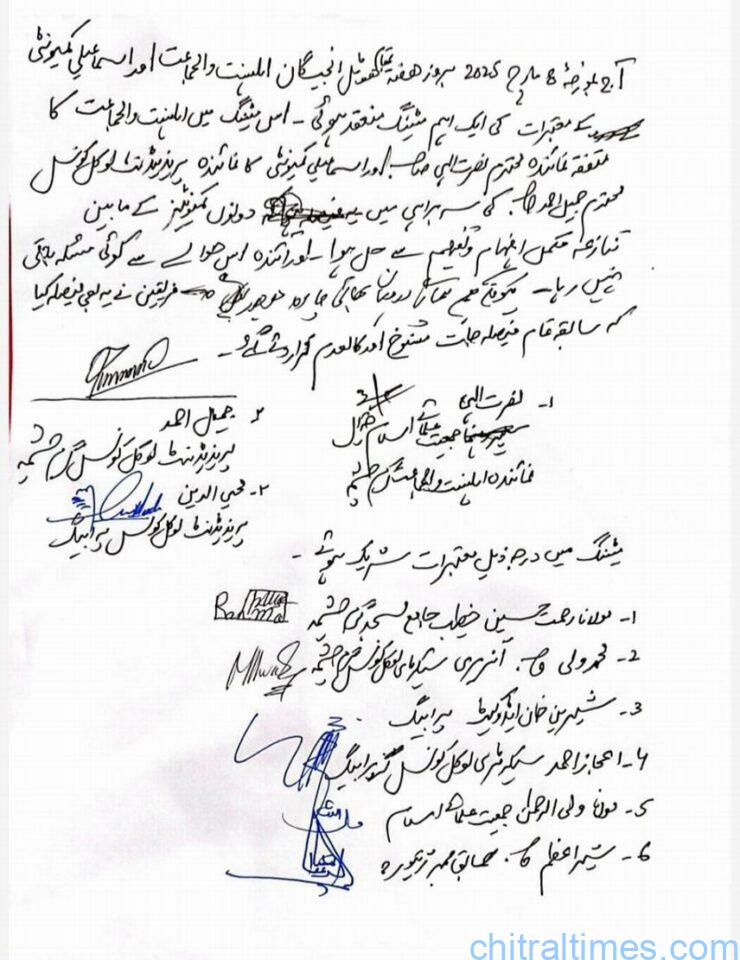 آج بمورخہ 8 مارچ 2025 بروز ہفتہ بمقام ہوٹل انجیگان اہلسنت والجماعت اور اسماعیلی کمیونٹی
کے معتبرات کی ایک اہم میٹنگ منعقد ہوئی ۔ اس میٹنگ میں اہلسنت والجماعت کا
متفقہ نمائندہ محترم نصرت الہی صاحب اور اسماعیلی کمیونٹی کا نمائندہ پریذیڈنٹ لوکل کونسل
محترم جمیل احمد صاحب کی سربراہی میں دونوں کمیونٹیز کے مابین
تنازعہ مکمل افہام وتفہیم سے حل ہوا ۔ اور آئندہ اس حوالے سے کوئی مسئلہ باقی
نہیں رہا ۔ کیونکہ ہم بھائی چارہ موجود فریقین نے یہ بھی فیصلہ کیا
کہ سابقہ تمام فیصلہ جات منسوخ اور کالعدم قرار دئے گئے ۔
1۔ نصرت الہی
جمعیت علمائے اسلام
نمائندہ اہلسنت والجماعت گرم چشمہ
۲ ۔ جمیل احمد
پریذیڈنٹ لوکل کونسل گرم چشمہ
۲۔ محی الدین
پریذیڈنٹ لوکل کونسل پرابیگ
میٹنگ میں درجہ ذیل معتبرات شریک ہوئے ۔
1۔ مولانا رحمت حسین خطیب جامع مسجد گرم چشمہ
2۔ محمد ولی آنریری سیکریٹری لوکل کونسل گرم چشمہ
3۔ شیرین خان ایڈوکیٹ پرابیگ
4۔ اعجاز احمد سیکرٹری لوکل کونسل پرابیگ
5۔ مولانا ولی الرحمن جمعیت علمائے اسلام
6۔ شیر اعظم سابق ممبر
chitraltimes.com